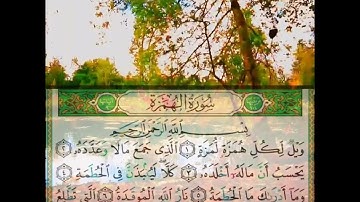 سُورَةُ الهُمَزَةِ
بِسْمِ اللَّهِ الرَّحْمَٰنِ الرَّحِيمِ
وَيْلٌ لِكُلِّ هُمَزَةٍ لُمَزَةٍ ١ الَّذِي جَمَعَ مَالًا وَعَدَّدَهُ ٢
يَحْسَبُ أَنَّ مَالَهُ أَخْلَدَهُ ٣ كَلَّا لَيُنْبَذَنَّ فِي الْحُطَمَةِ ٤
وَمَا أَدْرَاكَ مَا الْحُطَمَةُ ٥ نَارُ اللَّهِ الْمُوقَدَةُ ٦ الَّتِي تَطَّلِعُ